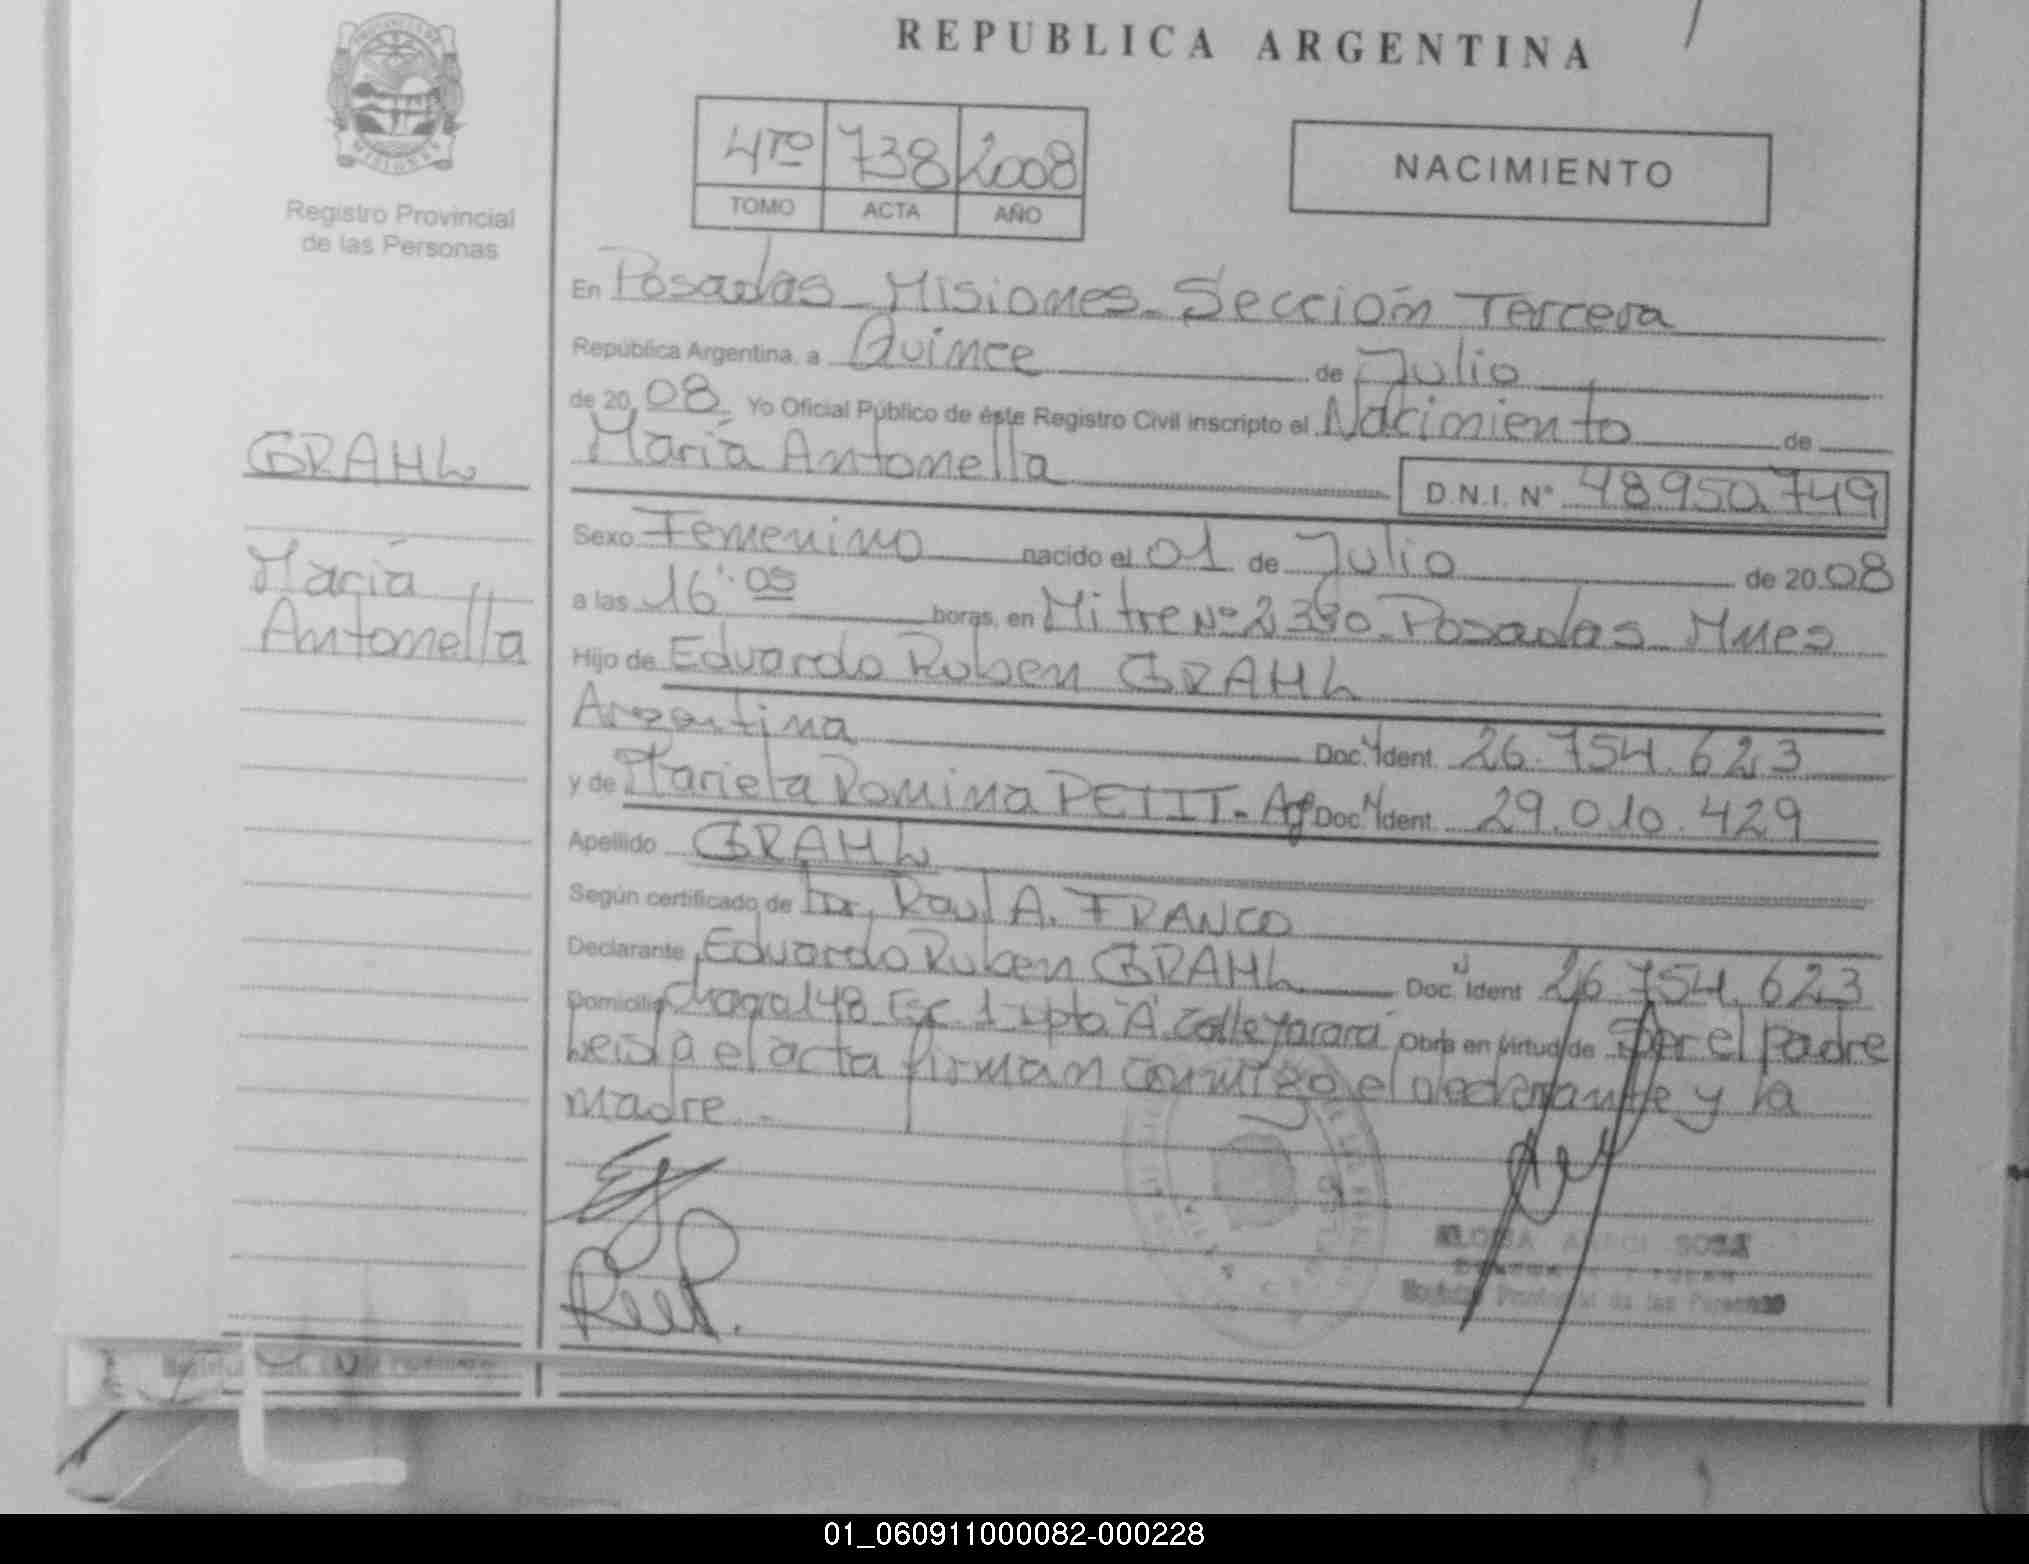 REPUBLICA ARGENTINA
PROVINCIA DE
MISIONES
Registro Provincial
de las Personas
4TO 738 2008
TOMO ACTA AÑO
NACIMIENTO
En Posadas - Misiones - Sección Tercera
República Argentina, a Quince de Julio
de 2008. Yo Oficial Público de éste Registro Civil inscripto el Nacimiento de
María Antonella D.N.I. Nº 48.950.749
GRAHL
María
Antonella
Sexo Femenino nacido el 01 de Julio de 2008
a las 16:05 horas, en Mitre Nº 2380 - Posadas - Mnes
Hijo de Eduardo Ruben GRAHL
Argentina Doc. Ident. 26.754.623
y de Mariela Romina PETIT - Ag Doc. Ident. 29.010.429
Apellido GRAHL
Según certificado de Dr. Raul A. FRANCO
Declarante Eduardo Ruben GRAHL Doc. Ident 26.754.623
Domicilio Chacra 148 Esc. 1 Dpto "A" Calle Yarará Obra en virtud de Ser el padre
Leida el acta firman conmigo el declarante y la
madre. -
SOSA
Registro Provincial de las Personas
01_060911000082-000228